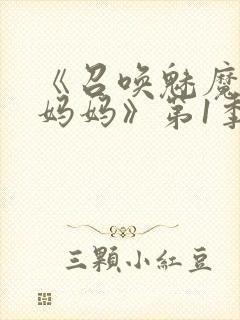 《召唤魅魔
妈妈》第1季
三顆小紅豆